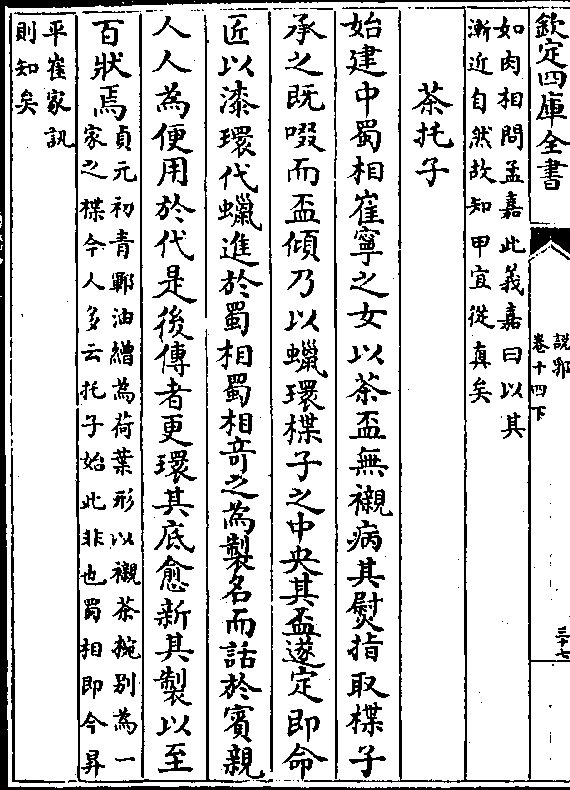 欽定四庫全書
說郛
卷十四下
三十七
如肉相問孟嘉此義嘉曰以其
漸近自然故知甲宜從真矣
茶托子
始建中蜀相崔寧之女以茶盃無襯病其熨指取楪子
承之既啜而盃傾乃以蠟環楪子之中央其盃遂定即命
匠以漆環代蠟進於蜀相蜀相奇之為製名而話於賓親
人人為便用於代是後傳者更環其底愈新其製以至
百狀焉
貞元初青鄆油繒為荷葉形以襯茶椀別為一
家之楪今人多云托子始此非也蜀相即今昇
平崔家訊
則知矣